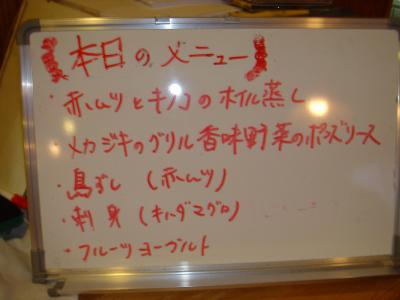 【本日のメニュー】
・赤ムツとキノコのホイル蒸し
・メカジキのグリル香味野菜のポンズソース
・鳥ずし（赤ムツ）
・刺身（キハダマグロ）
・フルーツヨーグルト